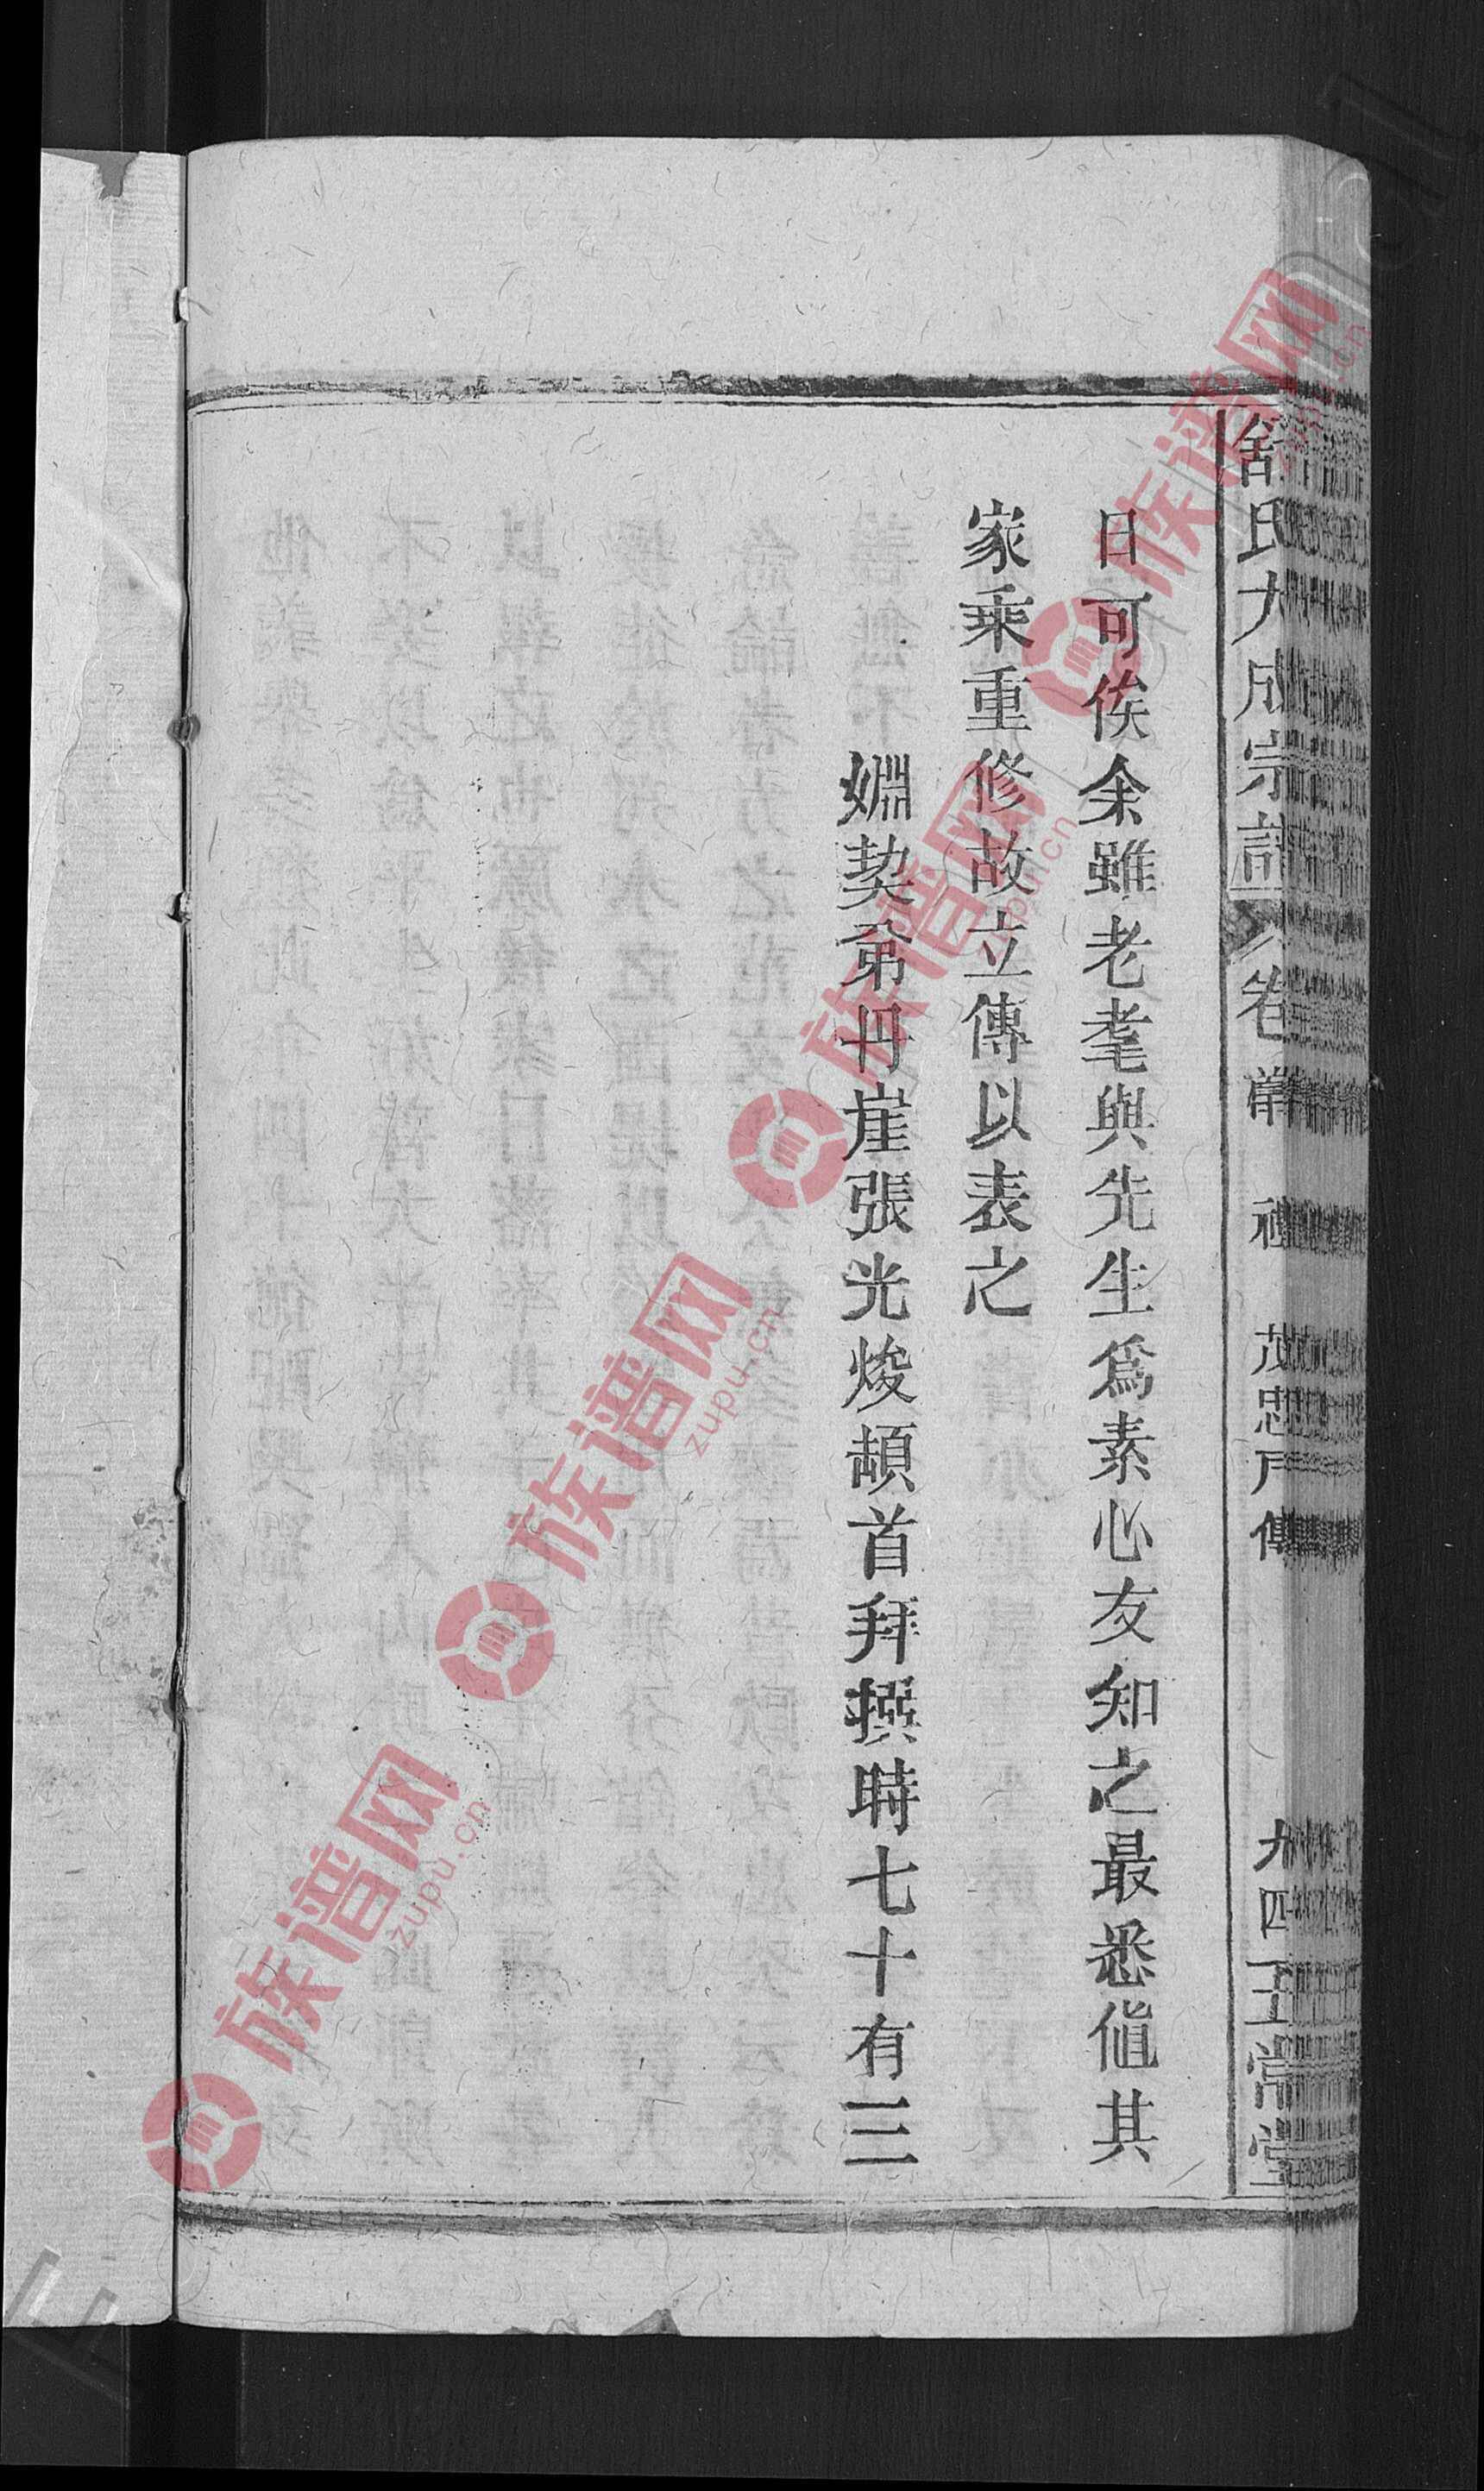 舒氏大成宗譜 卷首 社 茂忠戸傳 九四 五常堂
日可俟余雖老耄與先生爲素心友知之最悉値其
家乘重修故立傳以表之
姻契弟丹崖張光焌頓首拜撰時七十有三
族谱网
zupu.cn
族谱网
zupu.cn
族谱网
zupu.cn
族谱网
zupu.cn